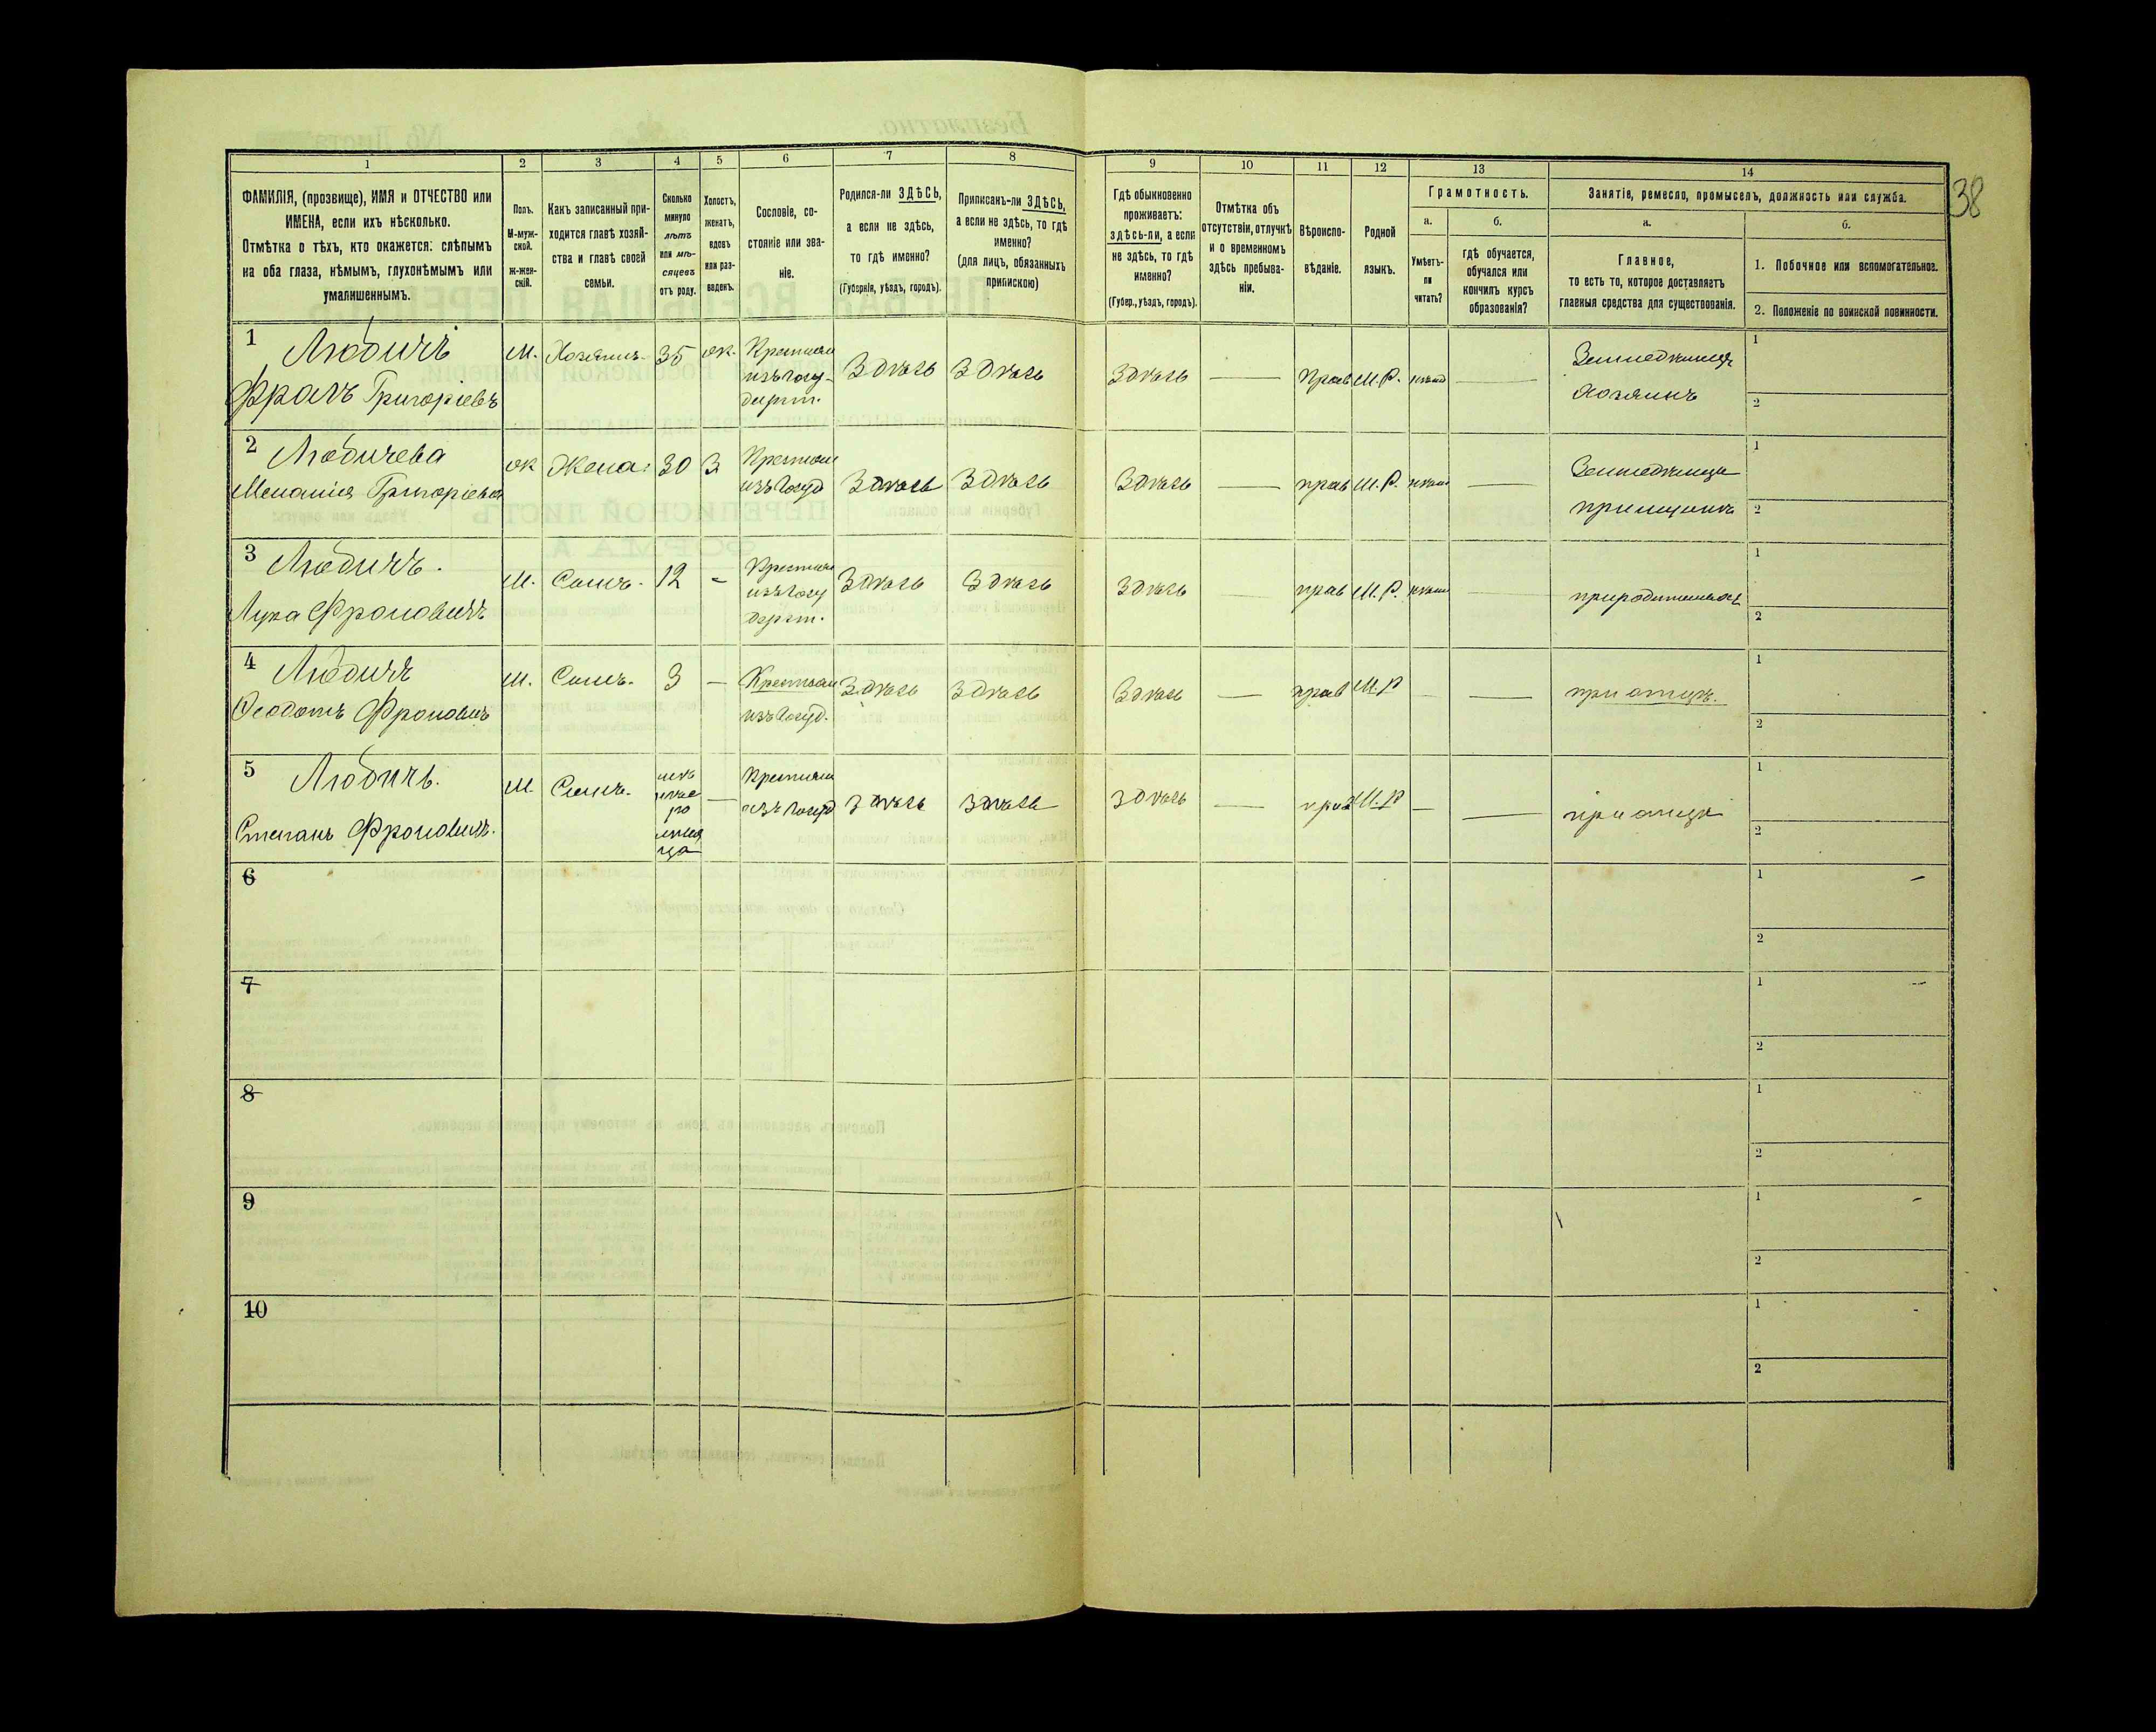 38
1 2 3 4 5 6 7 8 9 10 11 12 13 14
ФАМИЛІЯ, (прозвище), ИМЯ и ОТЧЕСТВО или
ИМЕНА, если ихъ нѣсколько.
Отмѣтка о тѣхъ, кто окажется: слѣпымъ
на оба глаза, нѣмымъ, глухонѣмымъ или
умалишеннымъ.
Полъ.
М-муж-
ской.
ж-жен-
скій.
Какъ записанный при-
ходится главѣ хозяй-
ства и главѣ своей
семьи.
Сколько
минуло
лѣтъ
или мѣ-
сяцевъ
отъ роду.
Холостъ,
женатъ,
вдовъ
или раз-
веденъ.
Сословіе, со-
стояніе или зва-
ніе.
Родился-ли ЗДѢСЬ,
а если не здѣсь,
то гдѣ именно?
(Губернія, уѣздъ, городъ).
Приписанъ-ли ЗДѢСЬ,
а если не здѣсь, то гдѣ
именно?
(для лицъ, обязанныхъ
припискою)
Гдѣ обыкновенно
проживаетъ:
здѣсь-ли, а если
не здѣсь, то гдѣ
именно?
(Губер., уѣздъ, городъ).
Отмѣтка объ
отсутствіи, отлучкѣ
и о временномъ
здѣсь пребыва-
ніи.
Вѣроиспо-
вѣданіе.
Родной
языкъ.
Грамотность.
а.
Умѣетъ-
ли
читать?
б.
гдѣ обучается,
обучался или
кончилъ курсъ
образованія?
Занятіе, ремесло, промыселъ, должность или служба.
а.
Главное,
то есть то, которое доставляетъ
главныя средства для существованія.
б.
1. Побочное или вспомогательное.
2. Положеніе по воинской повинности.
1 Любичъ
Фролъ Григоріевъ
М. Хозяинъ 35 ж.
Крестьян
изъ госу-
дарст.
Здѣсь Здѣсь Здѣсь — Прав М.Р. —
хозяинъ
1
2
2 Любичева
Меланія Григоріевна
ж Жена 30 З.
Крестьян
изъ госуд
Здѣсь Здѣсь Здѣсь — прав М.Р. —
1
2
3 Любичъ.
Лука Фроловичъ
М. Сынъ. 12 -
Крестьян
изъ госу
дарст.
Здѣсь Здѣсь Здѣсь — прав М.Р. —
природителяхъ
1
2
4 Любичъ
Ѳеодотъ Фроловичъ
М. Сынъ. 3 —
Крестьян
изъ госуд.
Здѣсь Здѣсь Здѣсь — прав М.Р — —
при отцѣ.
1
2
5 Любичъ.
Степанъ Фроловичъ.
М Сынъ. —
Крестьян
изъ госуд
здѣсь здѣсь здѣсь — прав М.Р — —
при отцѣ
1
2
6
1
2
7
1
2
8
1
2
9
1
2
10
1
2